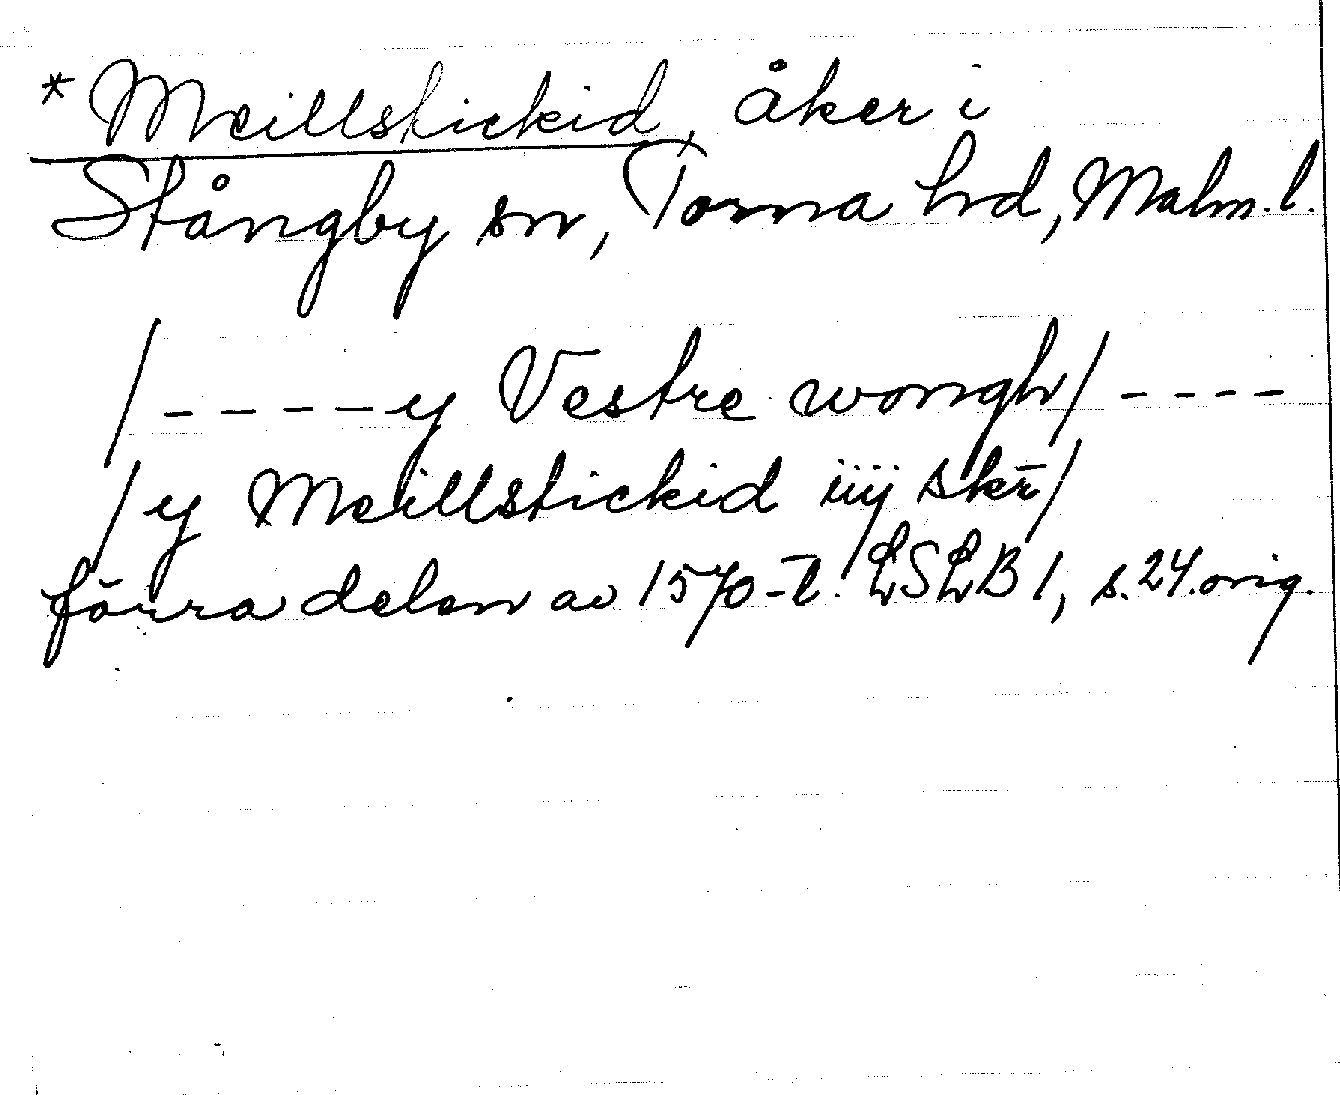 * Meillstickid, åker i
Stångby sn, Torna hd, Malm. l.
/ - - - - y Vestre wongh / - - - -
/ y Meillstickid iiij skr̄ /
förra delen av 1570-t. LSLB 1, s. 24. orig.